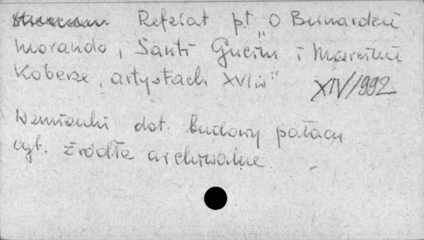 Referat pt "O Bernardzie
Morando, Santi Guccim i Marcinie
Koberze, artystach XVI w"
XIV/1992
Wzmianki dot. budowy pałacu
cyt. źródła archiwalne